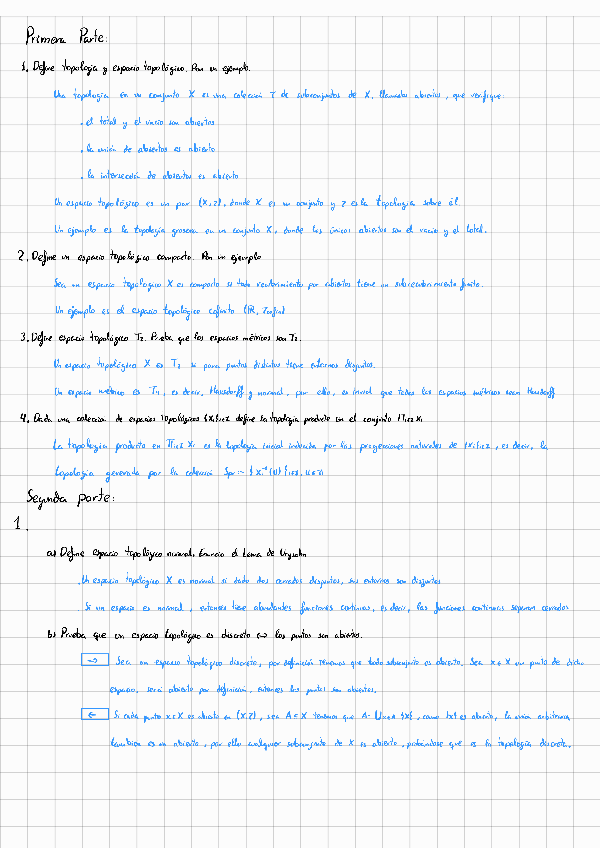 Primera Parte:
1. Define topología y espacio topológico. Pon un ejemplo.
Una topología en un conjunto X es una colección T de subconjuntos de X, llamados abiertos, que verifique:
. el total y el vacío son abiertos
. la unión de abiertos es abierto
. la intersección de abiertos es abierto
Un espacio topológico es un par (X,τ), donde X es un conjunto y τ es la topología sobre él.
Un ejemplo es la topología grosera en un conjunto X, donde los únicos abiertos son el vacío y el total.
2. Define un espacio topológico compacto. Pon un ejemplo
Sea un espacio topológico X es compacto si todo recubrimiento por abiertos tiene un subrecubrimiento finito.
Un ejemplo es el espacio topológico cofinito (ℝ, τcofin)
3. Define espacio topológico T₂. Prueba que los espacios métricos son T₂.
Un espacio topológico X es T₂ si para puntos distintos tiene entornos disjuntos.
Un espacio métrico es T₄, es decir, Hausdorff y normal, por ello, es trivial que todos los espacios métricos sean Hausdorff
4. Dada una colección de espacios topológicos {Xi}i∈I define la topología producto en el conjunto Πi∈I Xi
La topología producto en Πi∈I Xi es la topología inicial inducida por las proyecciones naturales de {Xi}i∈I, es decir, la
topología generada por la colección Spr:=
Segunda parte:
1.
a) Define espacio topológico normal. Enuncia el Lema de Urysohn
. Un espacio topológico X es normal si dado dos cerrados disjuntos, sus entornos son disjuntos
. Si un espacio es normal, entonces tiene abundantes funciones continuas, es decir, las funciones continuas separan cerrados
b) Prueba que un espacio topológico es discreto ⟺ los puntos son abiertos.
⇒ Sea un espacio topológico discreto, por definición tenemos que todo subconjunto es abierto. Sea x∈X un punto de dicho
espacio, será abierto por definición, entonces los puntos son abiertos.
⇐ Si cada punto x∈X es abierto en (X,τ), sea A∈X tenemos que A= ⋃x∈A {x}, como {x} es abierto, la unión arbitraria
también es un abierto, por ello cualquier subconjunto de X es abierto, probándose que es la topología discreta.